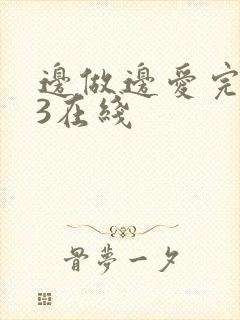 邊做邊愛完
3在綫
骨夢一夕